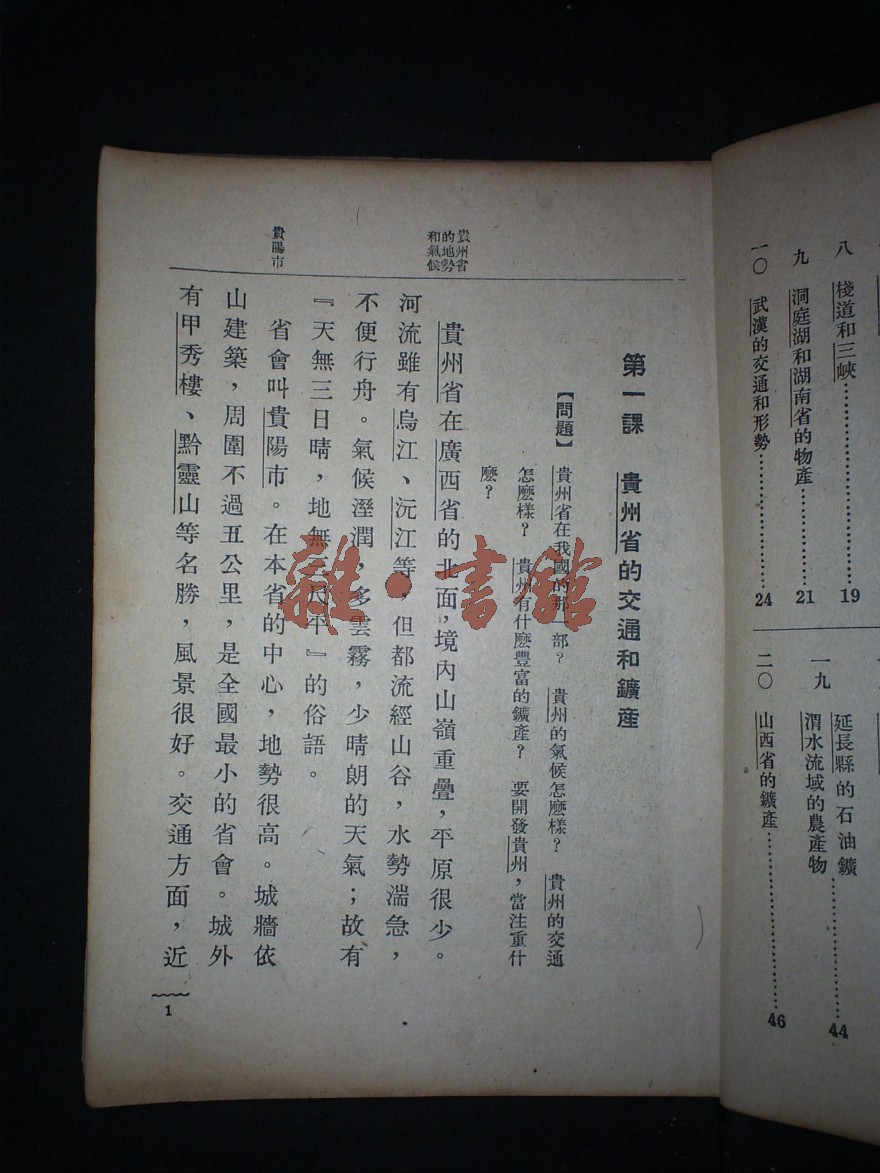 八 棧道和三峽……………19
九 洞庭湖和湖南省的物產……21
一〇 武漢的交通和形勢…………24
延長縣的石油鑛……………44
一九 渭水流域的農產物
二〇 山西省的鑛產……………46
貴州省
的地勢
和氣候
貴陽市
第一課 貴州省的交通和鑛產
【問題】 貴州省在我國的那一部? 貴州的氣候怎麽樣? 貴州的交通
怎麽樣? 貴州有什麽豐富的鑛產? 要開發貴州,當注重什
麽?
貴州省在廣西省的北面,境內山嶺重疊,平原很少。
河流雖有烏江、沅江等,但都流經山谷,水勢湍急,
不便行舟。氣候溼潤,多雲霧,少晴朗的天氣;故有
『天無三日晴,地無三尺平』的俗語。
省會叫貴陽市。在本省的中心,地勢很高。城牆依
山建築,周圍不過五公里,是全國最小的省會。城外
有甲秀樓、黔靈山等名勝,風景很好。交通方面,近
1
雜·書館